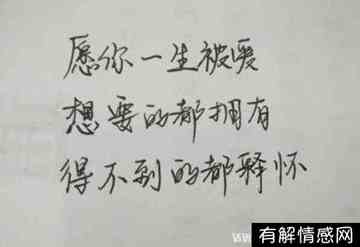 愿你一生被爱
想要的都拥有
得不到的都释怀
有解情感网